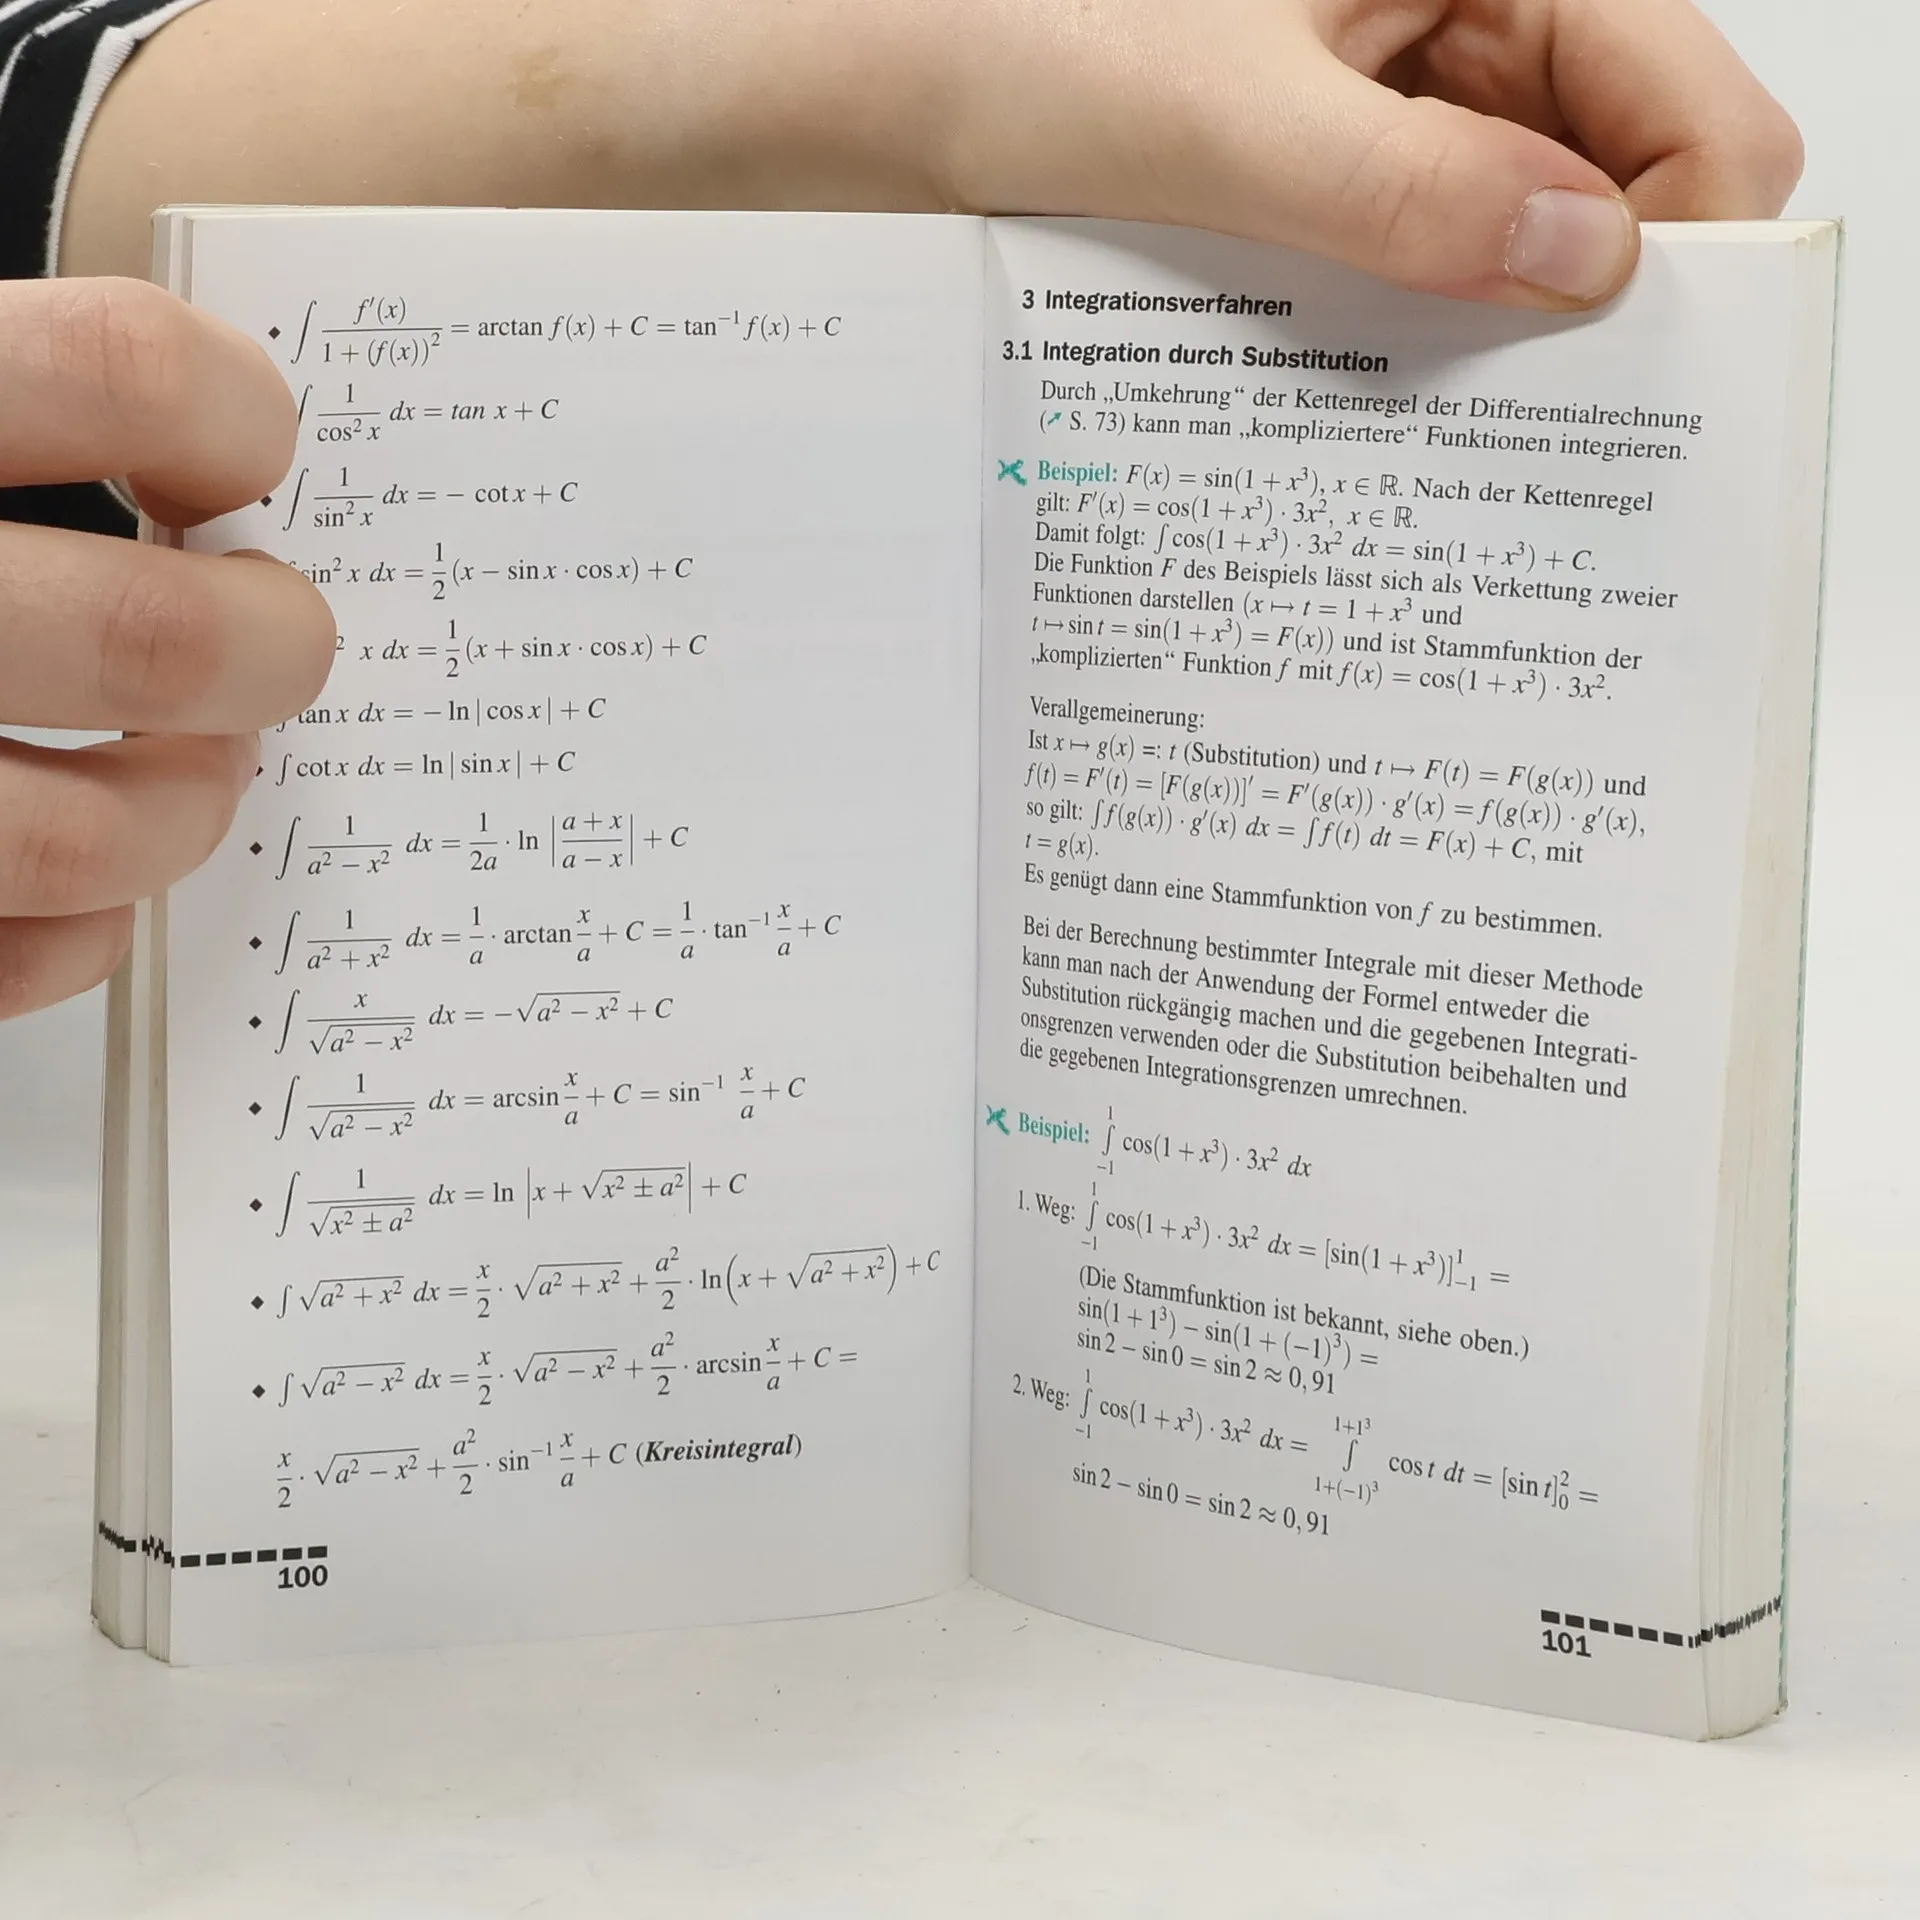 ◆ ∫ f′(x) / (1 + (f(x))²) = arctan f(x) + C = tan⁻¹ f(x) + C
∫ 1 / cos² x dx = tan x + C
◆ ∫ 1 / sin² x dx = − cot x + C
sin² x dx = 1/2 (x − sin x · cos x) + C
² x dx = 1/2 (x + sin x · cos x) + C
tan x dx = − ln | cos x | + C
∫ cot x dx = ln | sin x | + C
◆ ∫ 1 / (a² − x²) dx = 1/2a · ln |(a + x)/(a − x)| + C
◆ ∫ 1 / (a² + x²) dx = 1/a · arctan x/a + C = 1/a · tan⁻¹ x/a + C
◆ ∫ x / √(a² − x²) dx = −√(a² − x²) + C
◆ ∫ 1 / √(a² − x²) dx = arcsin x/a + C = sin⁻¹ x/a + C
◆ ∫ 1 / √(x² ± a²) dx = ln |x + √(x² ± a²)| + C
◆ ∫ √(a² + x²) dx = x/2 · √(a² + x²) + a²/2 · ln(x + √(a² + x²)) + C
◆ ∫ √(a² − x²) dx = x/2 · √(a² − x²) + a²/2 · arcsin x/a + C =
x/2 · √(a² − x²) + a²/2 · sin⁻¹ x/a + C (Kreisintegral)
100
3 Integrationsverfahren
3.1 Integration durch Substitution
Durch „Umkehrung“ der Kettenregel der Differentialrechnung
(↗ S. 73) kann man „kompliziertere“ Funktionen integrieren.
Beispiel: F(x) = sin(1 + x³), x ∈ ℝ. Nach der Kettenregel
gilt: F′(x) = cos(1 + x³) · 3x², x ∈ ℝ.
Damit folgt: ∫ cos(1 + x³) · 3x² dx = sin(1 + x³) + C.
Die Funktion F des Beispiels lässt sich als Verkettung zweier
Funktionen darstellen (x ↦ t = 1 + x³ und
t ↦ sin t = sin(1 + x³) = F(x)) und ist Stammfunktion der
„komplizierten“ Funktion f mit f(x) = cos(1 + x³) · 3x².
Verallgemeinerung:
Ist x ↦ g(x) =: t (Substitution) und t ↦ F(t) = F(g(x)) und
f(t) = F′(t) = [F(g(x))]′ = F′(g(x)) · g′(x) = f(g(x)) · g′(x),
so gilt: ∫ f(g(x)) · g′(x) dx = ∫ f(t) dt = F(x) + C, mit
t = g(x).
Es genügt dann eine Stammfunktion von f zu bestimmen.
Bei der Berechnung bestimmter Integrale mit dieser Methode
kann man nach der Anwendung der Formel entweder die
Substitution rückgängig machen und die gegebenen Integrati-
onsgrenzen verwenden oder die Substitution beibehalten und
die gegebenen Integrationsgrenzen umrechnen.
Beispiel: ∫₋₁¹ cos(1 + x³) · 3x² dx
1. Weg: ∫₋₁¹ cos(1 + x³) · 3x² dx = [sin(1 + x³)]₋₁¹ =
(Die Stammfunktion ist bekannt, siehe oben.)
sin(1 + 1³) − sin(1 + (−1)³) =
sin 2 − sin 0 = sin 2 ≈ 0,91
2. Weg: ∫₋₁¹ cos(1 + x³) · 3x² dx = ∫_{1+(−1)³}^{1+1³} cos t dt = [sin t]₀² =
sin 2 − sin 0 = sin 2 ≈ 0,91
101